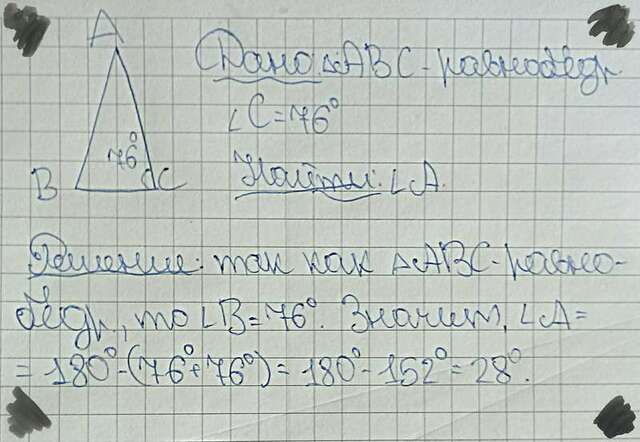 A
Дано: △ABC - равнобедр.
∠C=76°
76°
B
C
Найти: ∠A.
Решение: так как △ABC - равно-
бедр., то ∠B=76°. Значит, ∠A=
= 180°-(76°+76°) = 180°-152° = 28°.